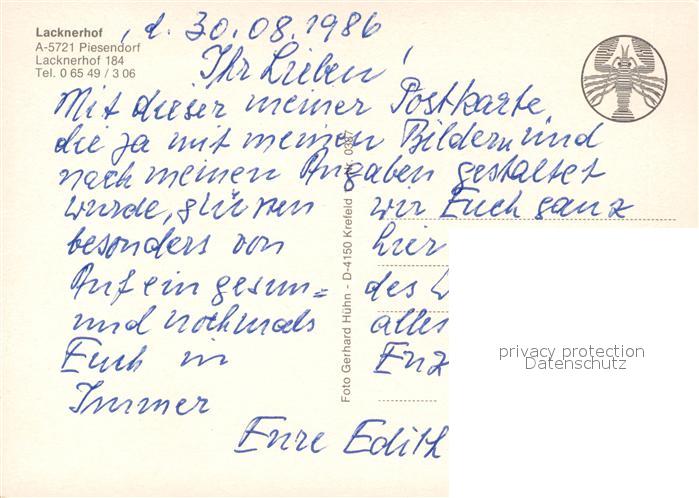 Lacknerhof
A-5721 Piesendorf
Lacknerhof 184
Tel. 0 65 49 / 3 06
, d. 30.08.1986
Ihr Lieben!
Mit dieser meiner Postkarte,
die ja mit meinen Bildern und
nach meinen Angaben gestaltet
wurde, grüssen wir Euch ganz
besonders von hier
Auf ein gesun= des
und nochmals alles
Euch in Enz
Immer
Eure Edith
Foto Gerhard Hühn - D-4150 Krefeld
privacy protection
Datenschutz